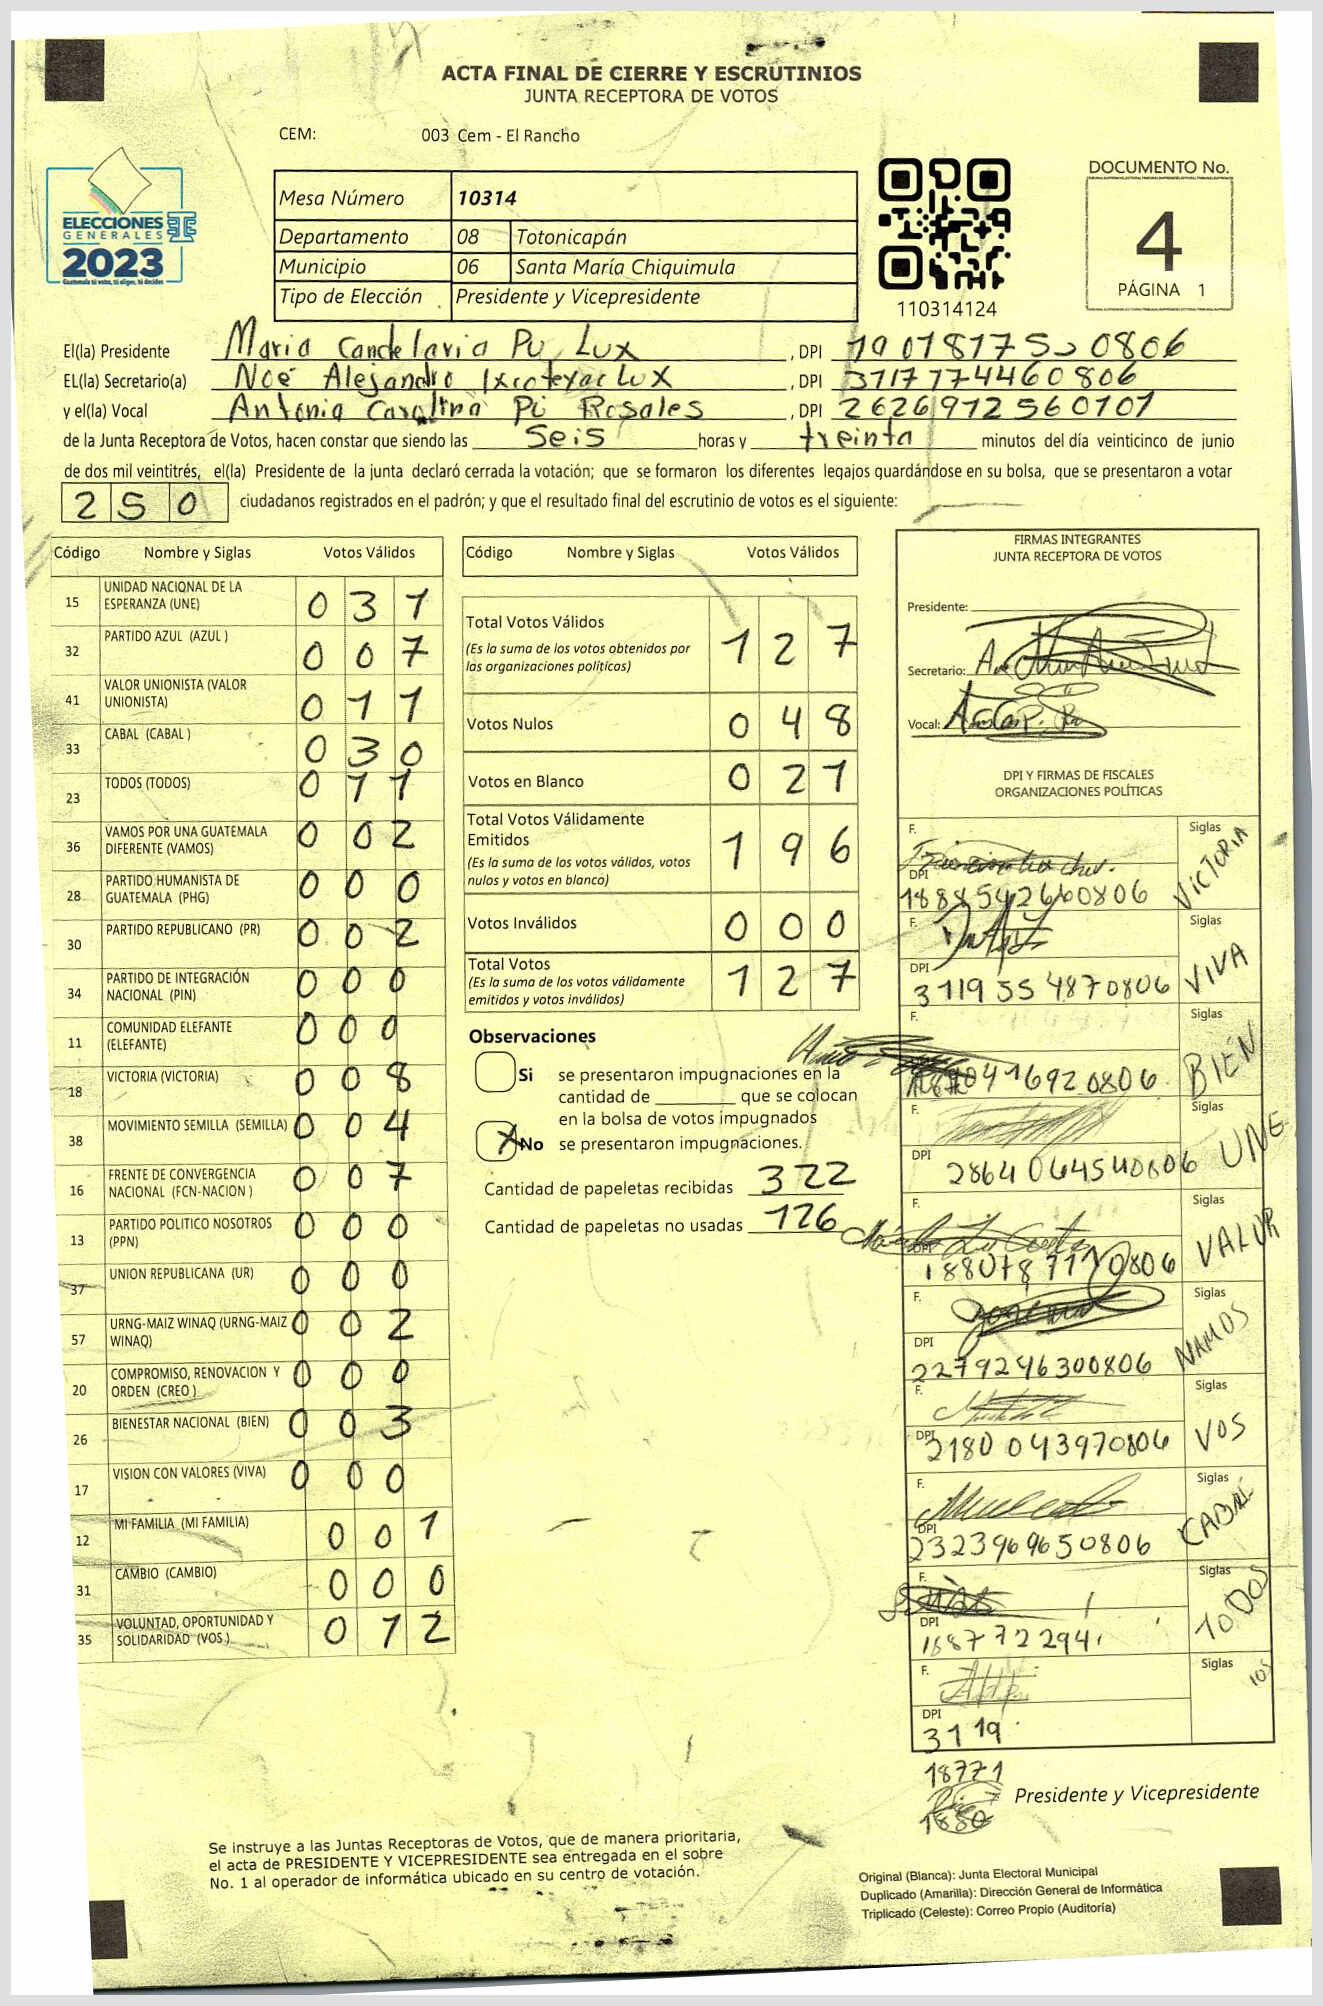 ACTA FINAL DE CIERRE Y ESCRUTINIOS
JUNTA RECEPTORA DE VOTOS
CEM: 003 Cem - El Rancho
ELECCIONES
GENERALES
2023
Guatemala tú votas, tú eliges, tú decides
Mesa Número 10314
Departamento 08 Totonicapán
Municipio 06 Santa María Chiquimula
Tipo de Elección Presidente y Vicepresidente
110314124
DOCUMENTO No.
4
PÁGINA 1
El(la) Presidente Maria Candelaria Pu Lux , DPI
EL(la) Secretario(a) Noé Alejandro Ixcoteyac Lux , DPI 3717774460806
y el(la) Vocal Antonia Carolina Pú Rosales , DPI 2626912560101
de la Junta Receptora de Votos, hacen constar que siendo las Seis horas y treinta minutos del día veinticinco de junio
de dos mil veintitrés, el(la) Presidente de la junta declaró cerrada la votación; que se formaron los diferentes legajos quardándose en su bolsa, que se presentaron a votar
250 ciudadanos registrados en el padrón; y que el resultado final del escrutinio de votos es el siguiente:
Código Nombre y Siglas Votos Válidos
15 UNIDAD NACIONAL DE LA ESPERANZA (UNE) 031
32 PARTIDO AZUL (AZUL ) 007
41 VALOR UNIONISTA (VALOR UNIONISTA) 011
33 CABAL (CABAL ) 030
23 TODOS (TODOS) 011
36 VAMOS POR UNA GUATEMALA DIFERENTE (VAMOS) 002
28 PARTIDO HUMANISTA DE GUATEMALA (PHG) 000
30 PARTIDO REPUBLICANO (PR) 002
34 PARTIDO DE INTEGRACIÓN NACIONAL (PIN) 000
11 COMUNIDAD ELEFANTE (ELEFANTE) 000
18 VICTORIA (VICTORIA) 008
38 MOVIMIENTO SEMILLA (SEMILLA) 004
16 FRENTE DE CONVERGENCIA NACIONAL (FCN-NACION ) 007
13 PARTIDO POLITICO NOSOTROS (PPN) 000
37 UNION REPUBLICANA (UR) 000
57 URNG-MAIZ WINAQ (URNG-MAIZ WINAQ) 002
20 COMPROMISO, RENOVACION Y ORDEN (CREO ) 000
26 BIENESTAR NACIONAL (BIEN) 003
17 VISION CON VALORES (VIVA) 000
12 MI FAMILIA (MI FAMILIA) 001
31 CAMBIO (CAMBIO) 000
35 VOLUNTAD, OPORTUNIDAD Y SOLIDARIDAD (VOS ) 012
Código Nombre y Siglas Votos Válidos
Total Votos Válidos 127
(Es la suma de los votos obtenidos por
las organizaciones políticas)
Votos Nulos 048
Votos en Blanco 021
Total Votos Válidamente
Emitidos 196
(Es la suma de los votos válidos, votos
nulos y votos en blanco)
Votos Inválidos 000
Total Votos 127
(Es la suma de los votos válidamente
emitidos y votos inválidos)
Observaciones
Si se presentaron impugnaciones en la
cantidad de ________ que se colocan
en la bolsa de votos impugnados
X No se presentaron impugnaciones.
Cantidad de papeletas recibidas 322
Cantidad de papeletas no usadas 126
FIRMAS INTEGRANTES
JUNTA RECEPTORA DE VOTOS
Presidente:
Secretario:
Vocal:
DPI Y FIRMAS DE FISCALES
ORGANIZACIONES POLÍTICAS
F. Siglas
DPI VICTORIA
1888542660806
F. Siglas
DPI VIVA
3119554870806
F. Siglas
BIEN
F. Siglas
DPI UNE
2864064540806
F. Siglas
DPI VALOR
F. Siglas
DPI NAMOS
2279246300806
F. Siglas
DPI VOS
2180043970806
F. Siglas
DPI CABAL
2323969650806
F. Siglas
DPI TODOS
1687722941
F. Siglas
DPI
3119
18771
1880
Presidente y Vicepresidente
Se instruye a las Juntas Receptoras de Votos, que de manera prioritaria,
el acta de PRESIDENTE Y VICEPRESIDENTE sea entregada en el sobre
No. 1 al operador de informática ubicado en su centro de votación.
Original (Blanca): Junta Electoral Municipal
Duplicado (Amarilla): Dirección General de Informática
Triplicado (Celeste): Correo Propio (Auditoría)